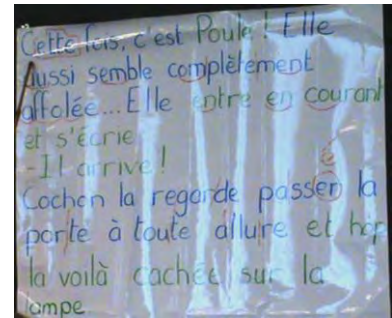 Cette fois, c'est Poule ! Elle
aussi semble complètement
affolée... Elle entre en courant
et s'écrie
-Il arrive !
é
Cochon la regarde passer la
porte à toute allure et hop
la voilà cachée sur la
lampe